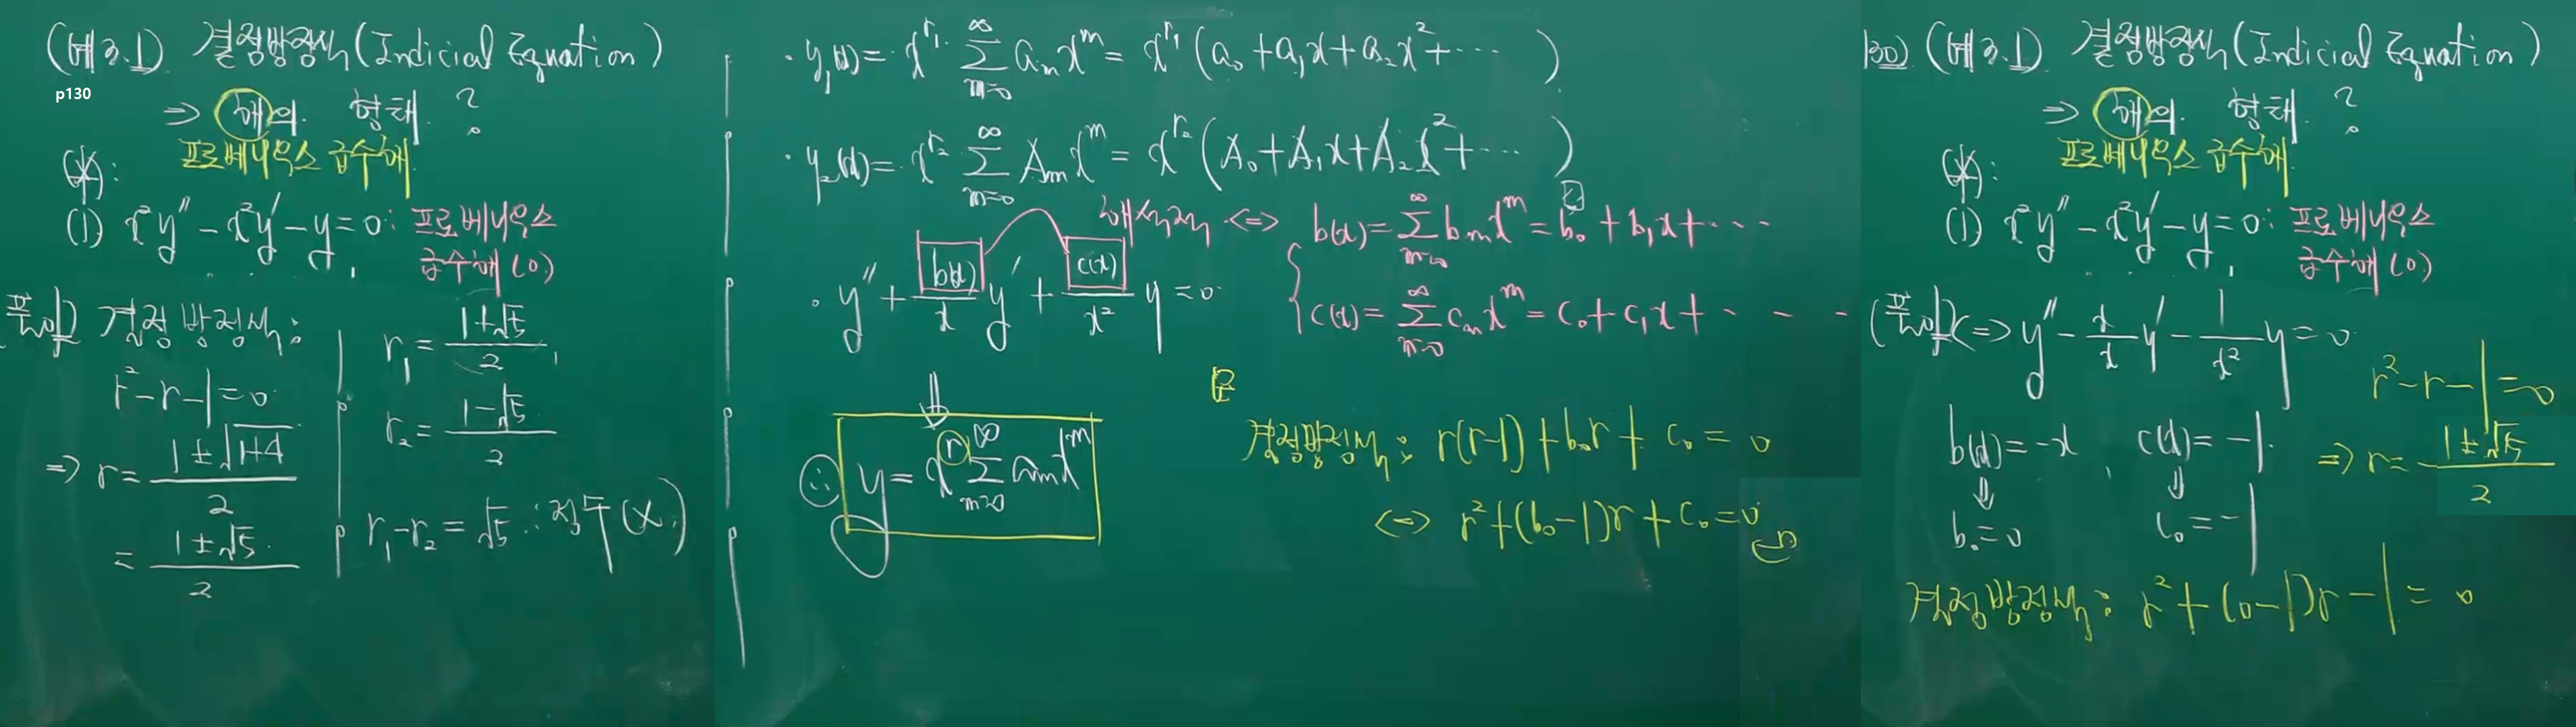 (예3.1) 결정방정식(Indicial Equation)
p130
⇒ 해의 형태 ?
프로베니우스 급수해
(*):
(1) x²y'' - x²y' - y = 0 : 프로베니우스
급수해 (0)
풀이) 결정방정식:
r² - r - 1 = 0
⇒ r = (1 ± √(1+4)) / 2
= (1 ± √5) / 2
r₁ = (1+√5) / 2,
r₂ = (1-√5) / 2
r₁ - r₂ = √5 : 정수(X)
· y₁(x) = x^r₁ ∑_{m=0}^∞ aₘx^m = x^r₁ (a₀ + a₁x + a₂x² + ⋯ )
· y₂(x) = x^r₂ ∑_{m=0}^∞ Aₘx^m = x^r₂ (A₀ + A₁x + A₂x² + ⋯ )
해석적 ⇔ b(x) = ∑_{m=0}^∞ bₘx^m = b₀ + b₁x + ⋯
c(x) = ∑_{m=0}^∞ cₘx^m = c₀ + c₁x + ⋯
· y'' + (b(x)/x) y' + (c(x)/x²) y = 0
⇓
∴ y = x^r ∑_{m=0}^∞ aₘx^m
결정방정식: r(r-1) + b₀r + c₀ = 0
⇔ r² + (b₀-1)r + c₀ = 0
130) (예3.1) 결정방정식(Indicial Equation)
⇒ 해의 형태 ?
프로베니우스 급수해
(*):
(1) x²y'' - x²y' - y = 0 : 프로베니우스
급수해 (0)
(풀이) ⇔ y'' - (x/x) y' - (1/x²) y = 0
b(x) = -x, c(x) = -1
⇓ ⇓
b₀ = 0 c₀ = -1
r² - r - 1 = 0
⇒ r = (1 ± √5) / 2
결정방정식: r² + (0-1)r - 1 = 0